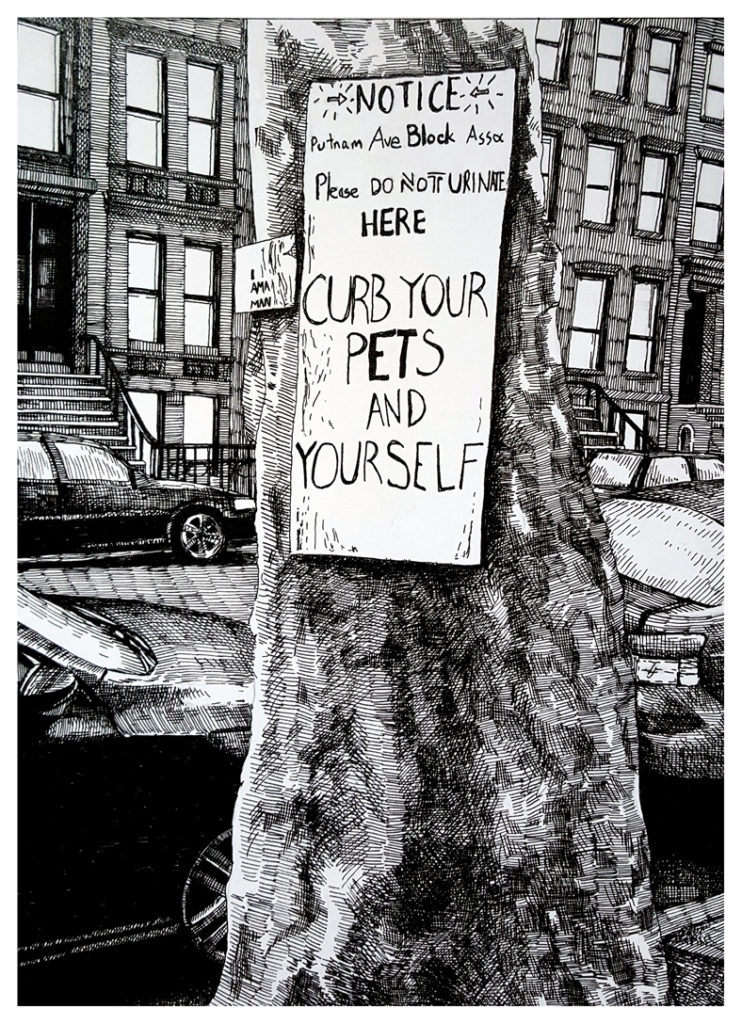 NOTICE
Putnam Ave Block Assoc
Please DO NOT URINATE
HERE
CURB YOUR
PETS
AND
YOURSELF
I
AMA
MAN